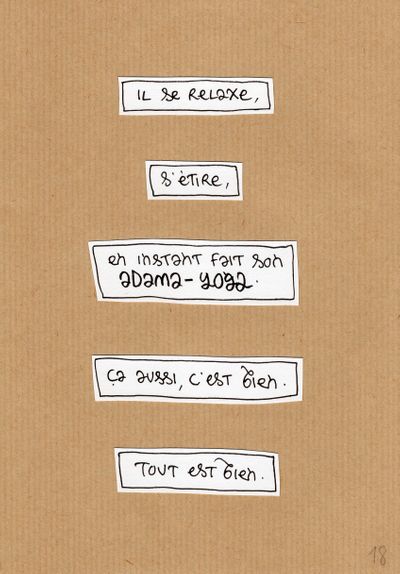 IL se ReLaxe,
s'étire,
en instant fait son
adama-yoga.
ça aussi, c'est bien.
Tout est bien.
18